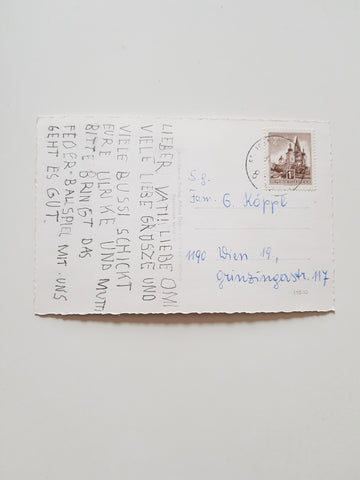 LIEBER VATI! LIEBE OMI
VIELE LIEBE GRÜSZE UND
VIELE BUSSI SCHICKT
EURE ULRIKE UND MUTTI
BITTE BRINGT DAS
FEDER-BALLSPIEL MIT. UNS
GEHT ES GUT.
Sg.
Fam. G. Köppl
1190 Wien 19,
Grinzingerstr. 117